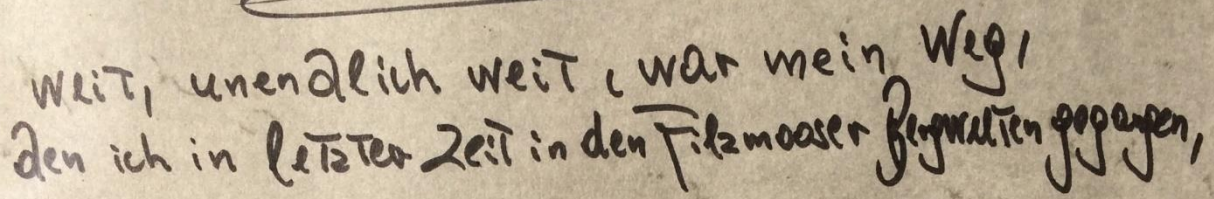 weit, unendlich weit, war mein Weg,
den ich in letzter Zeit in den Filzmooser Bergwelten gegangen,